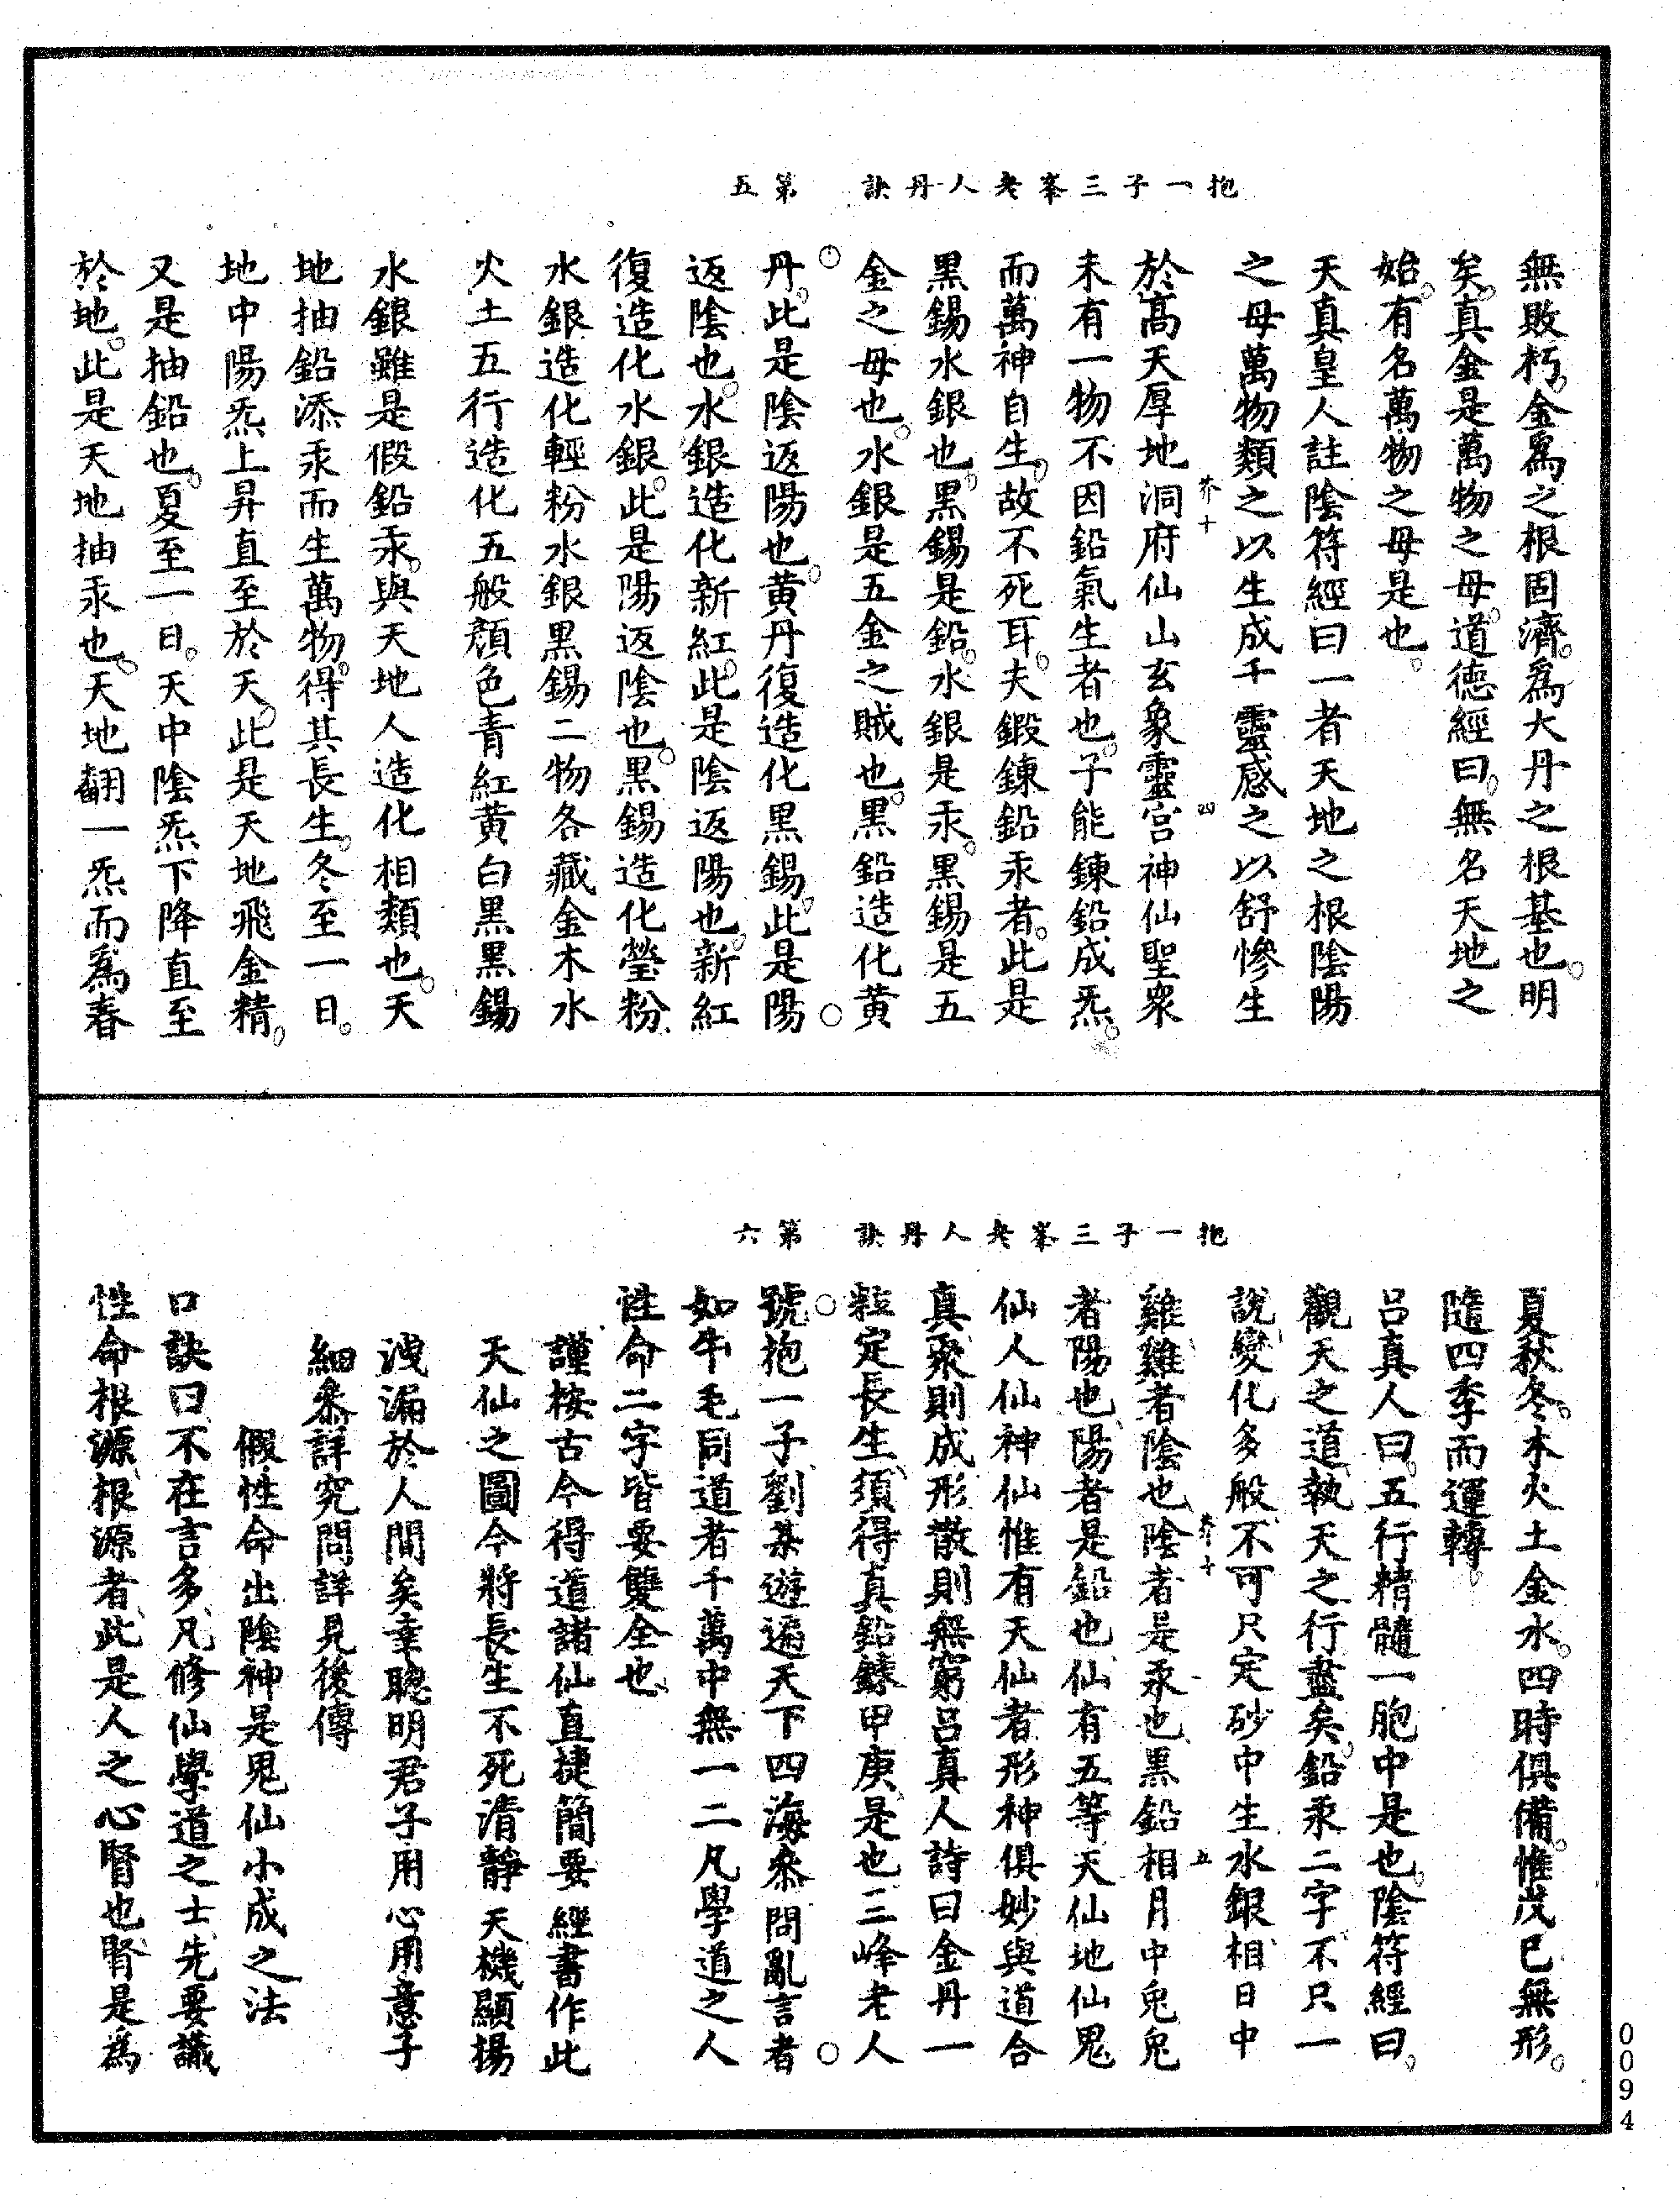 抱一子三峯老人丹訣　第五
無敗朽金爲之根固濟爲大丹之根基也明
矣真金是萬物之母道德經曰無名天地之
始有名萬物之母是也
天真皇人註陰符經曰一者天地之根陰陽
之母萬物類之以生成千靈感之以舒慘生
芥十　四
於高天厚地洞府仙山玄象靈宮神仙聖衆
未有一物不因鉛氣生者也子能鍊鉛成炁
而萬神自生故不死耳夫鍛鍊鉛汞者此是
黑錫水銀也黑錫是鉛水銀是汞黑錫是五
金之母也水銀是五金之賊也黑鉛造化黄
丹此是陰返陽也黄丹復造化黑錫此是陽
返陰也水銀造化新紅此是陰返陽也新紅
復造化水銀此是陽返陰也黑錫造化瑩粉
水銀造化輕粉水銀黑錫二物各藏金木水
火土五行造化五般顔色青紅黄白黑黑錫
水銀雖是假鉛汞與天地人造化相類也天
地抽鉛添汞而生萬物得其長生冬至一日
地中陽炁上昇直至於天此是天地飛金精
又是抽鉛也夏至一日天中陰炁下降直至
於地此是天地抽汞也天地翻一炁而爲春
抱一子三峯老人丹訣　第六
夏秋冬木火土金水四時俱備惟戊巳無形
隨四季而運轉
吕真人曰五行精髓一胞中是也陰符經曰
觀天之道執天之行盡矣鉛汞二字不只一
說變化多般不可尺定砂中生水銀相日中
芥十　五
雞雞者陰也陰者是汞也黑鉛相月中兔兔
者陽也陽者是鉛也仙有五等天仙地仙鬼
仙人仙神仙惟有天仙者形神俱妙與道合
真聚則成形散則無窮吕真人詩曰金丹一
粒定長生須得真鉛鍊甲庚是也三峰老人
號抱一子劉某遊遍天下四海叅問亂言者
如牛毛同道者千萬中無一二凡學道之人
性命二字皆要雙全也
謹按古今得道諸仙直捷簡要經書作此
天仙之圖今將長生不死清靜天機顯揚
洩漏於人間矣幸聰明君子用心用意子
細叅詳究問詳見後傳
假性命出陰神是鬼仙小成之法
口訣曰不在言多凡修仙學道之士先要議
性命根源根源者此是人之心腎也腎是爲
0094